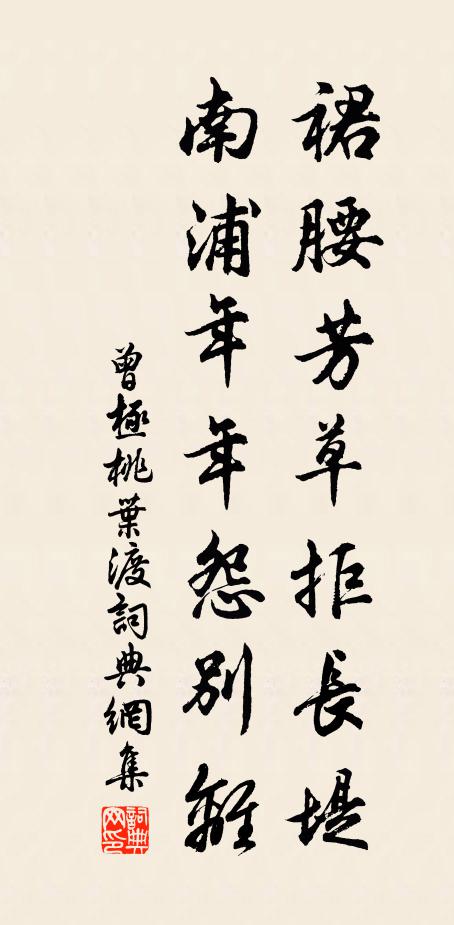 裙腰芳草拒長堤
南浦年年怨別離
曾極桃葉渡詞典網集
詞典網印